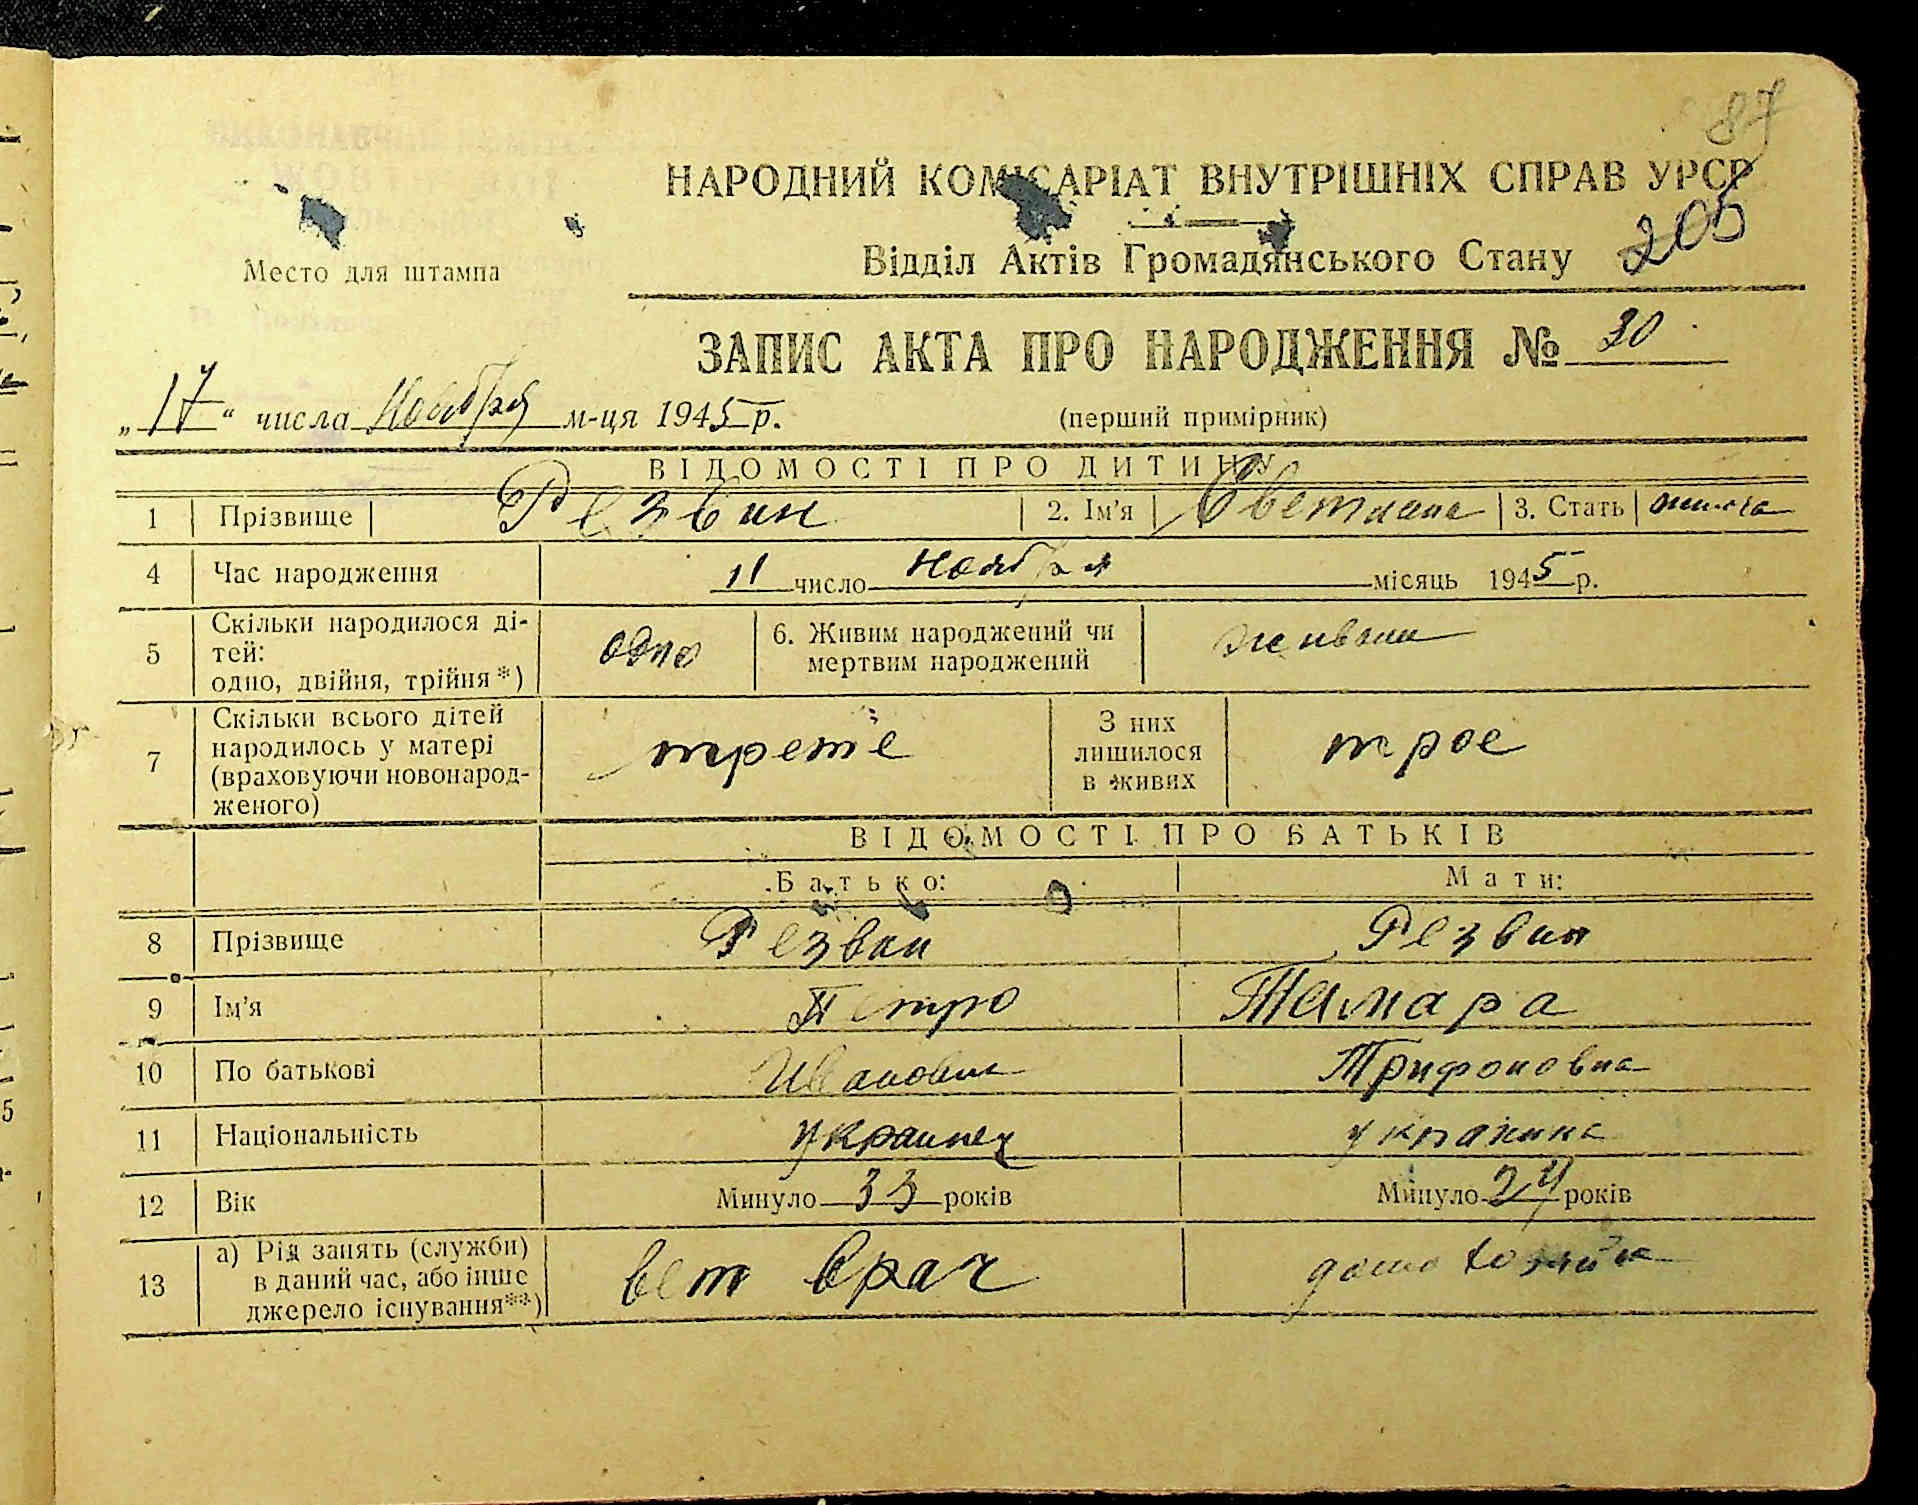 87
НАРОДНИЙ КОМІСАРІАТ ВНУТРІШНІХ СПРАВ УРСР
205
Место для штампа
Відділ Актів Громадянського Стану
ЗАПИС АКТА ПРО НАРОДЖЕННЯ № 30
„17“ числа Ноября м-ця 1945 р.
(перший примірник)
ВІДОМОСТІ ПРО ДИТИНУ
1 Прізвище Резвин 2. Ім'я Светлана 3. Стать
4 Час народження 11 число ноября місяць 1945 р.
5 Скільки народилося ді-
тей:
одно, двійня, трійня*) одно
6. Живим народжений чи
мертвим народжений живым
7 Скільки всього дітей
народилось у матері
(враховуючи новонарод-
женого) третє
З них
лишилося
в живих трое
ВІДОМОСТІ ПРО БАТЬКІВ
Батько: Мати:
8 Прізвище Резвин Резвин
9 Ім'я Петро Тамара
10 По батькові Иванович Трифоновна
11 Національність украинец украинка
12 Вік Минуло 33 років Минуло 24 років
13 а) Рід занять (служби)
в даний час, або інше
джерело існування**) вет врач домохозяйка